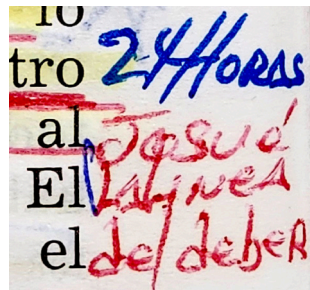 lo
tro 24 HORAS
al Josué
El LaLínea
el del deber